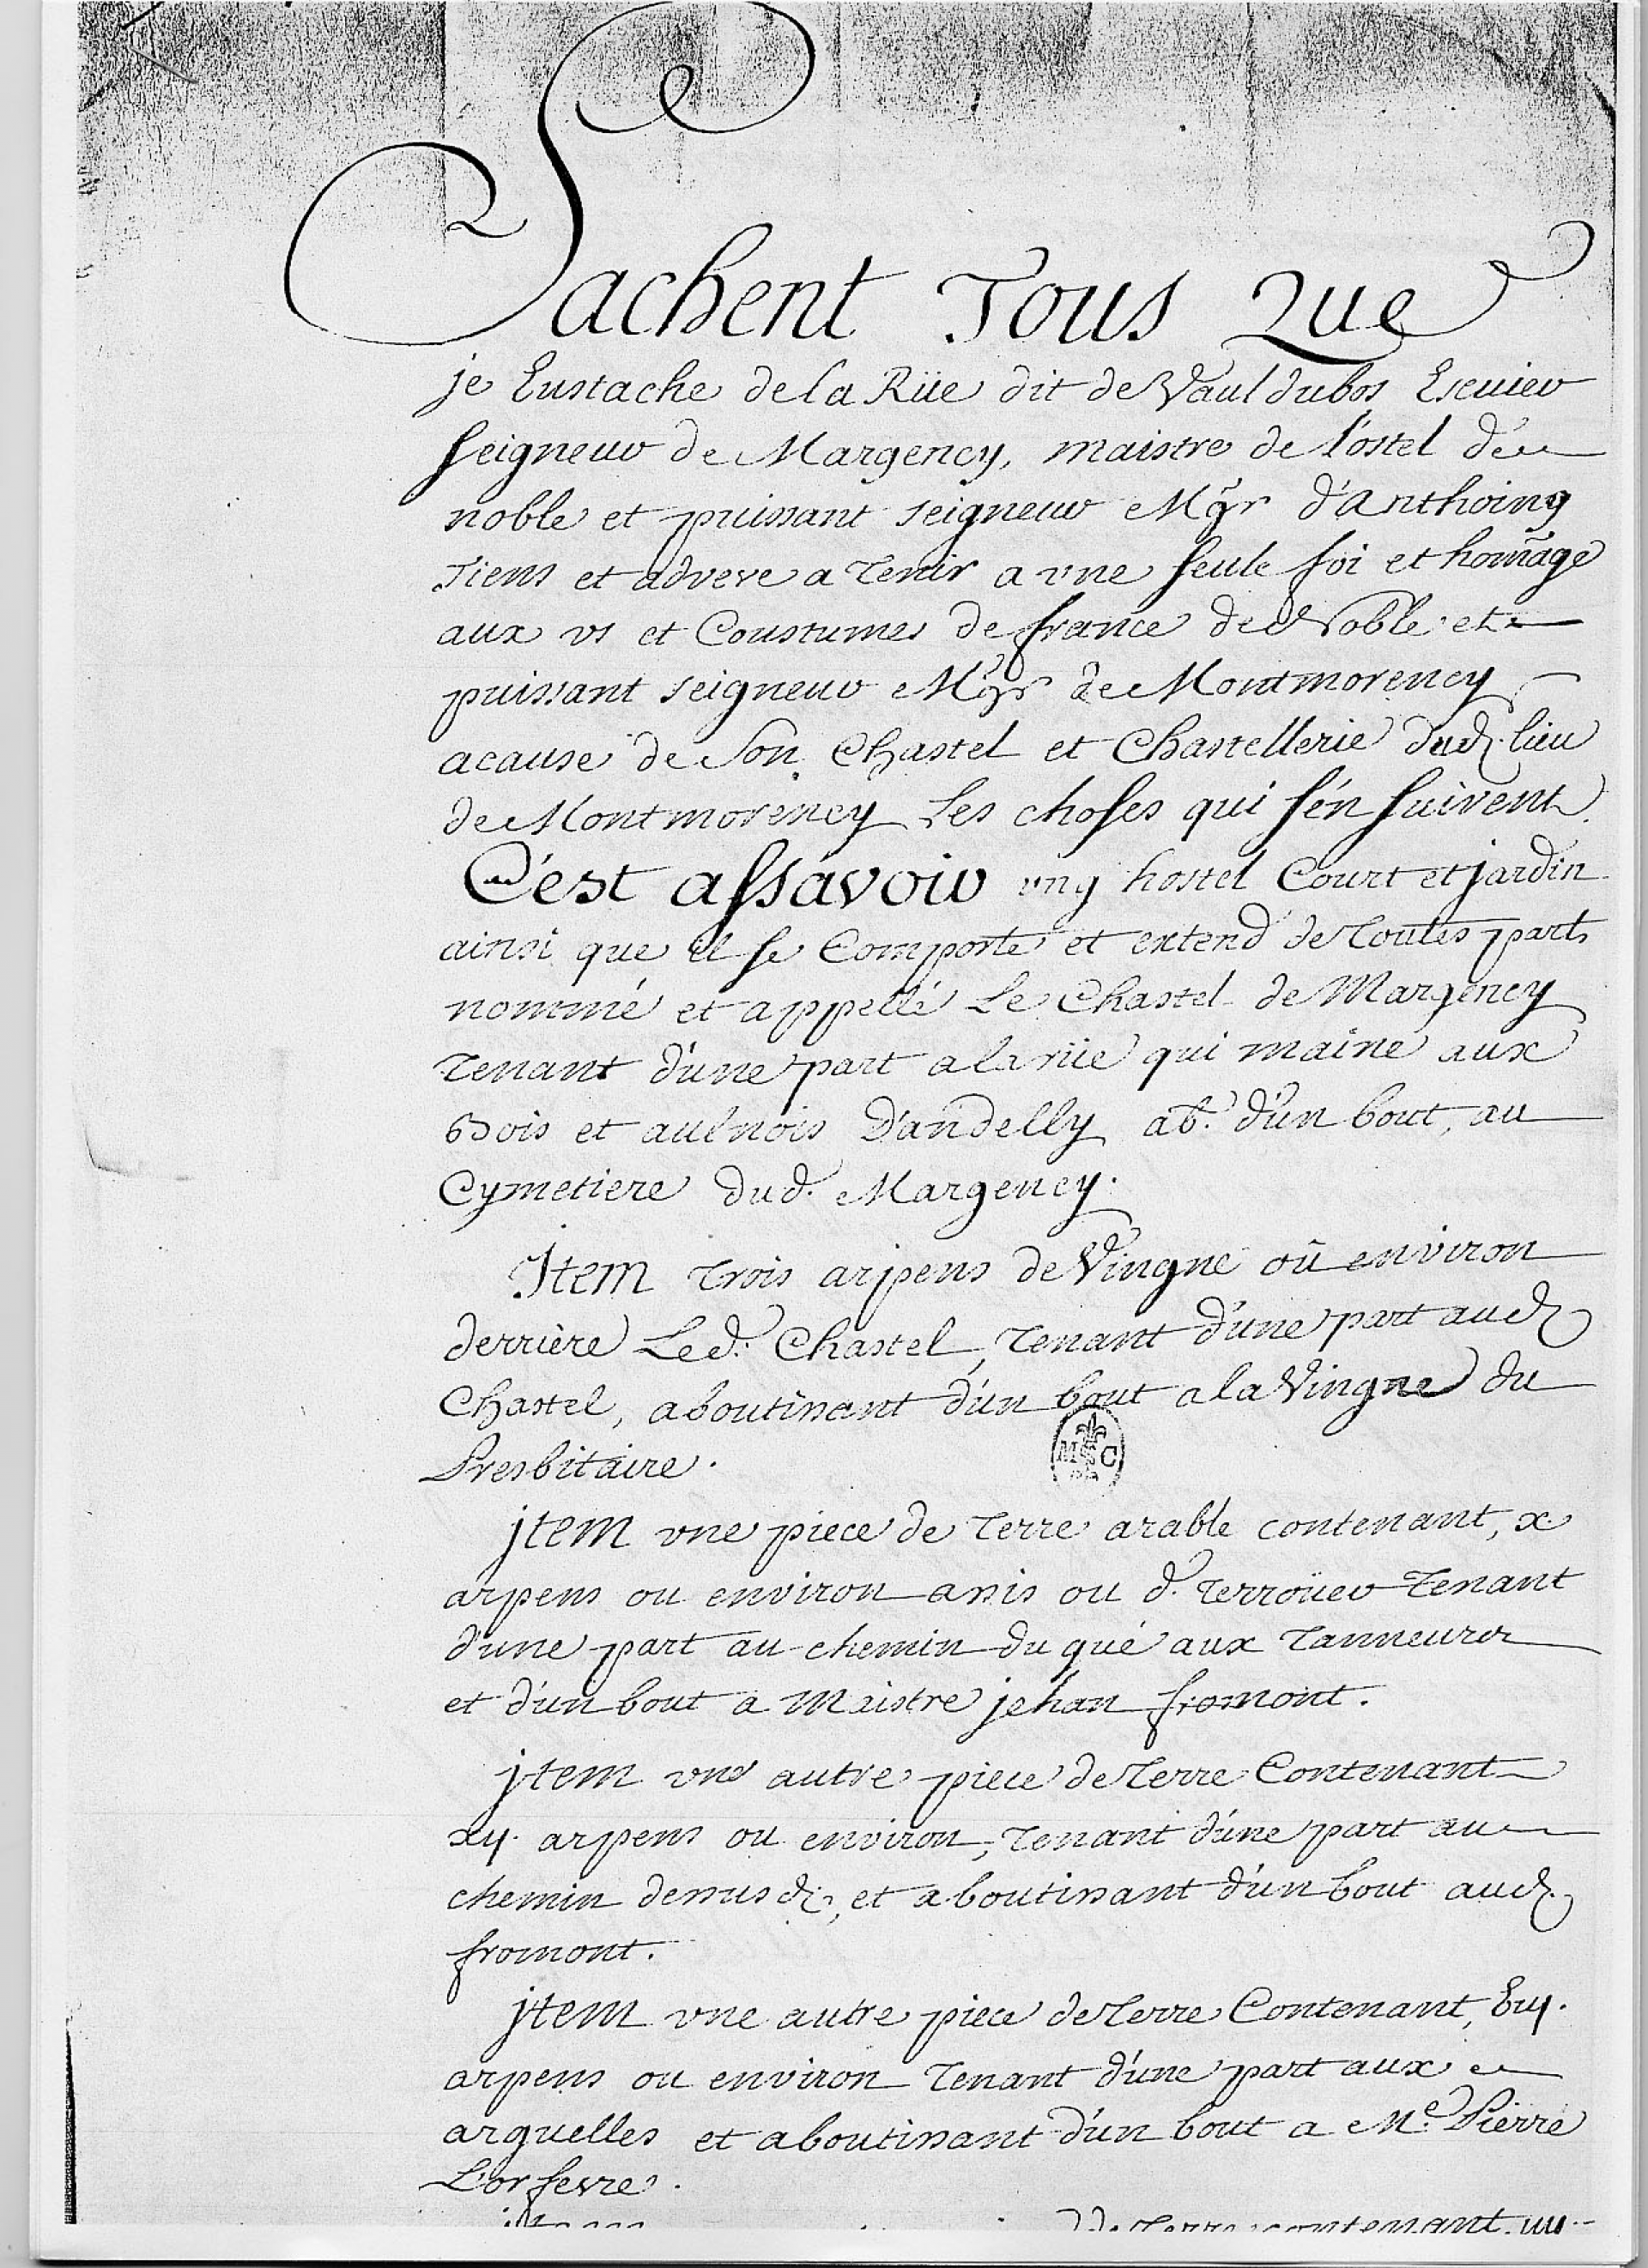 Sachent Tous Que
je Eustache de la Rüe dit de Vauldubos Escuier
seigneur de Margency, maistre de l'ostel de
noble et puissant seigneur Mgr d'Anthoing
Tiens et advere a Tenir a vne seule foi et hom̃age
aux vs et Coustumes de france de Noble et
puissant seigneur Mgr de Montmorency
acause de Son Chastel et Chastellerie dud. lieu
de Montmorency Les choses qui s'en suivent.
C'est assavoir ung hostel Court et jardin
ainsi que il se Comporte et extend de Toutes parts
nommé et appellé Le Chastel de Margency
Tenant d'une part a la rüe qui maine aux
Bois et aulnois D'andelly ab. d'un bout, au
Cymetiere dud. Margency.
Item Trois arpens de Vingne oû environ
derrière Led. Chastel, Tenant d'une part aud.
Chastel, aboutissant d'un bout a la Vingne du
Presbitaire.
M C
jtem vne piece de Terre arable contenant, x
arpens ou environ assis ou d. Terroüer Tenant
d'une part au chemin du gué aux Tanneurs
et d'un bout a Maistre jehan fromont.
jtem vne autre piece de Terre Contenant
xij. arpens ou environ, Tenant d'une part au
chemin dessus d., et aboutissant d'un bout aud.
fromont.
jtem vne autre piece de Terre Contenant,
arpens ou environ Tenant d'une part aux
arguelles et aboutissant d'un bout a Me. Pierre
L'orfevre.
de Terre contenant